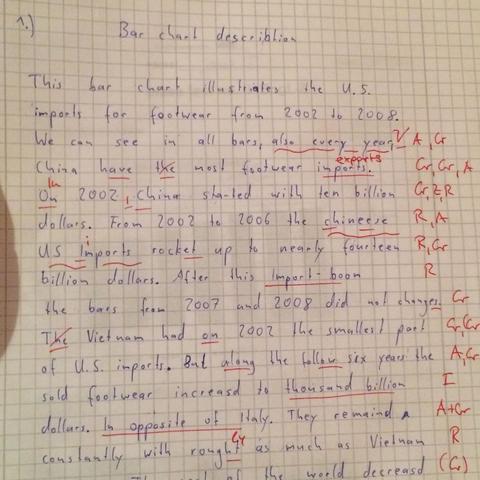 1.) Bar chart describtion
This bar chart illustriates the U.S.
imports for footwear from 2002 to 2008.
We can see in all bars, also every year, V A, Gr
China have the most footwear imports. exports Gr, Gr, A
On In 2002, China sta-ted with ten billion Gr, Z, R
dollars. From 2002 to 2006 the chineese R, A
US Imports i rocket up to nearly fourteen R, Gr
billion dollars. After this Import-boon R
the bars from 2007 and 2008 did not changes. Gr
The Vietnam had on 2002 the smallest part Gr (Gr
of U.S. imports. But along the follow six years the A, Gr
sold footwear increasd to thousand billion I
dollars. In opposite of Italy. They remaind A+Gr
constantly with rought Gr as much as Vietnam R
of the world decreasd (Gr)